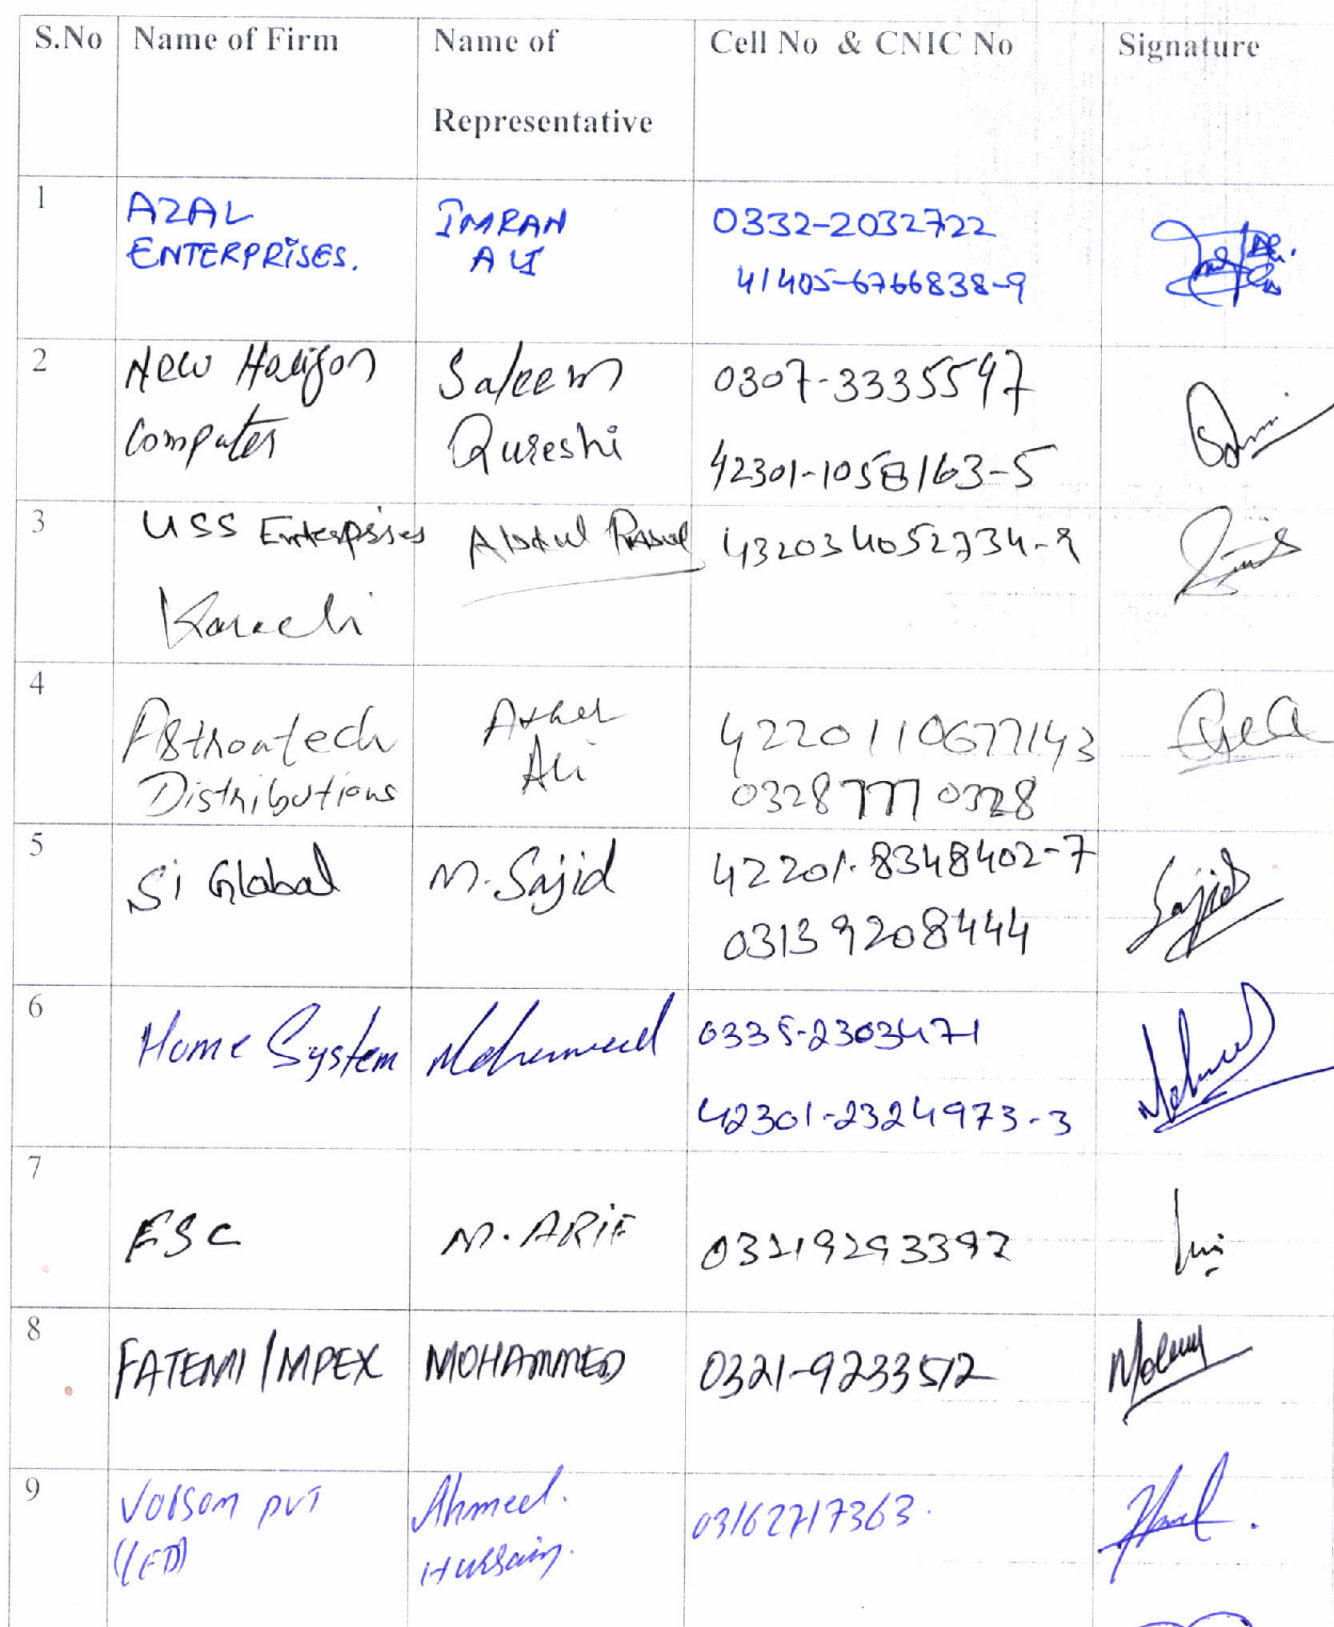 S.No Name of Firm Name of Representative Cell No & CNIC No Signature
1 AZAL ENTERPRISES. IMRAN ALI 0332-2032722
41405-6766838-9
2 New Horizon Computer Saleem Qureshi 0307-3335597
42301-1058163-5
3 USS Enterprises Karachi Abdul Rasul 432034052734-9
4 Astrontech Distributions Ather Ali 4220110677143
03287770328
5 Si Global M. Sajid 42201-8348402-7
03139208444
Sajid
6 Home System Mohammed 0335-2303471
42301-2324973-3
7 FSC M. ARIF 03219293392
8 FATEMI IMPEX MOHAMMED 0321-9233512
9 pvt Ahmed. Hussain. 03162717363.